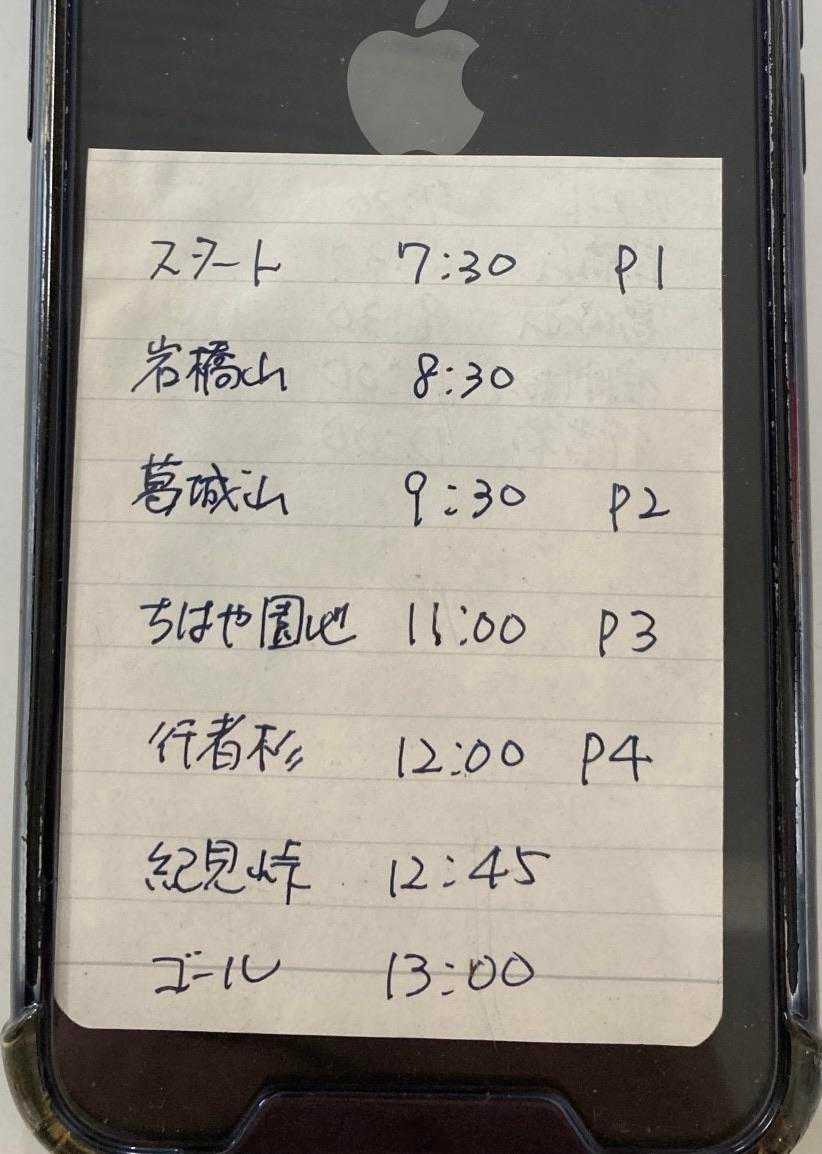 スタート 7:30 P1
岩橋山 8:30
葛城山 9:30 P2
ちはや園地 11:00 P3
行者杉 12:00 P4
紀見峠 12:45
ゴール 13:00